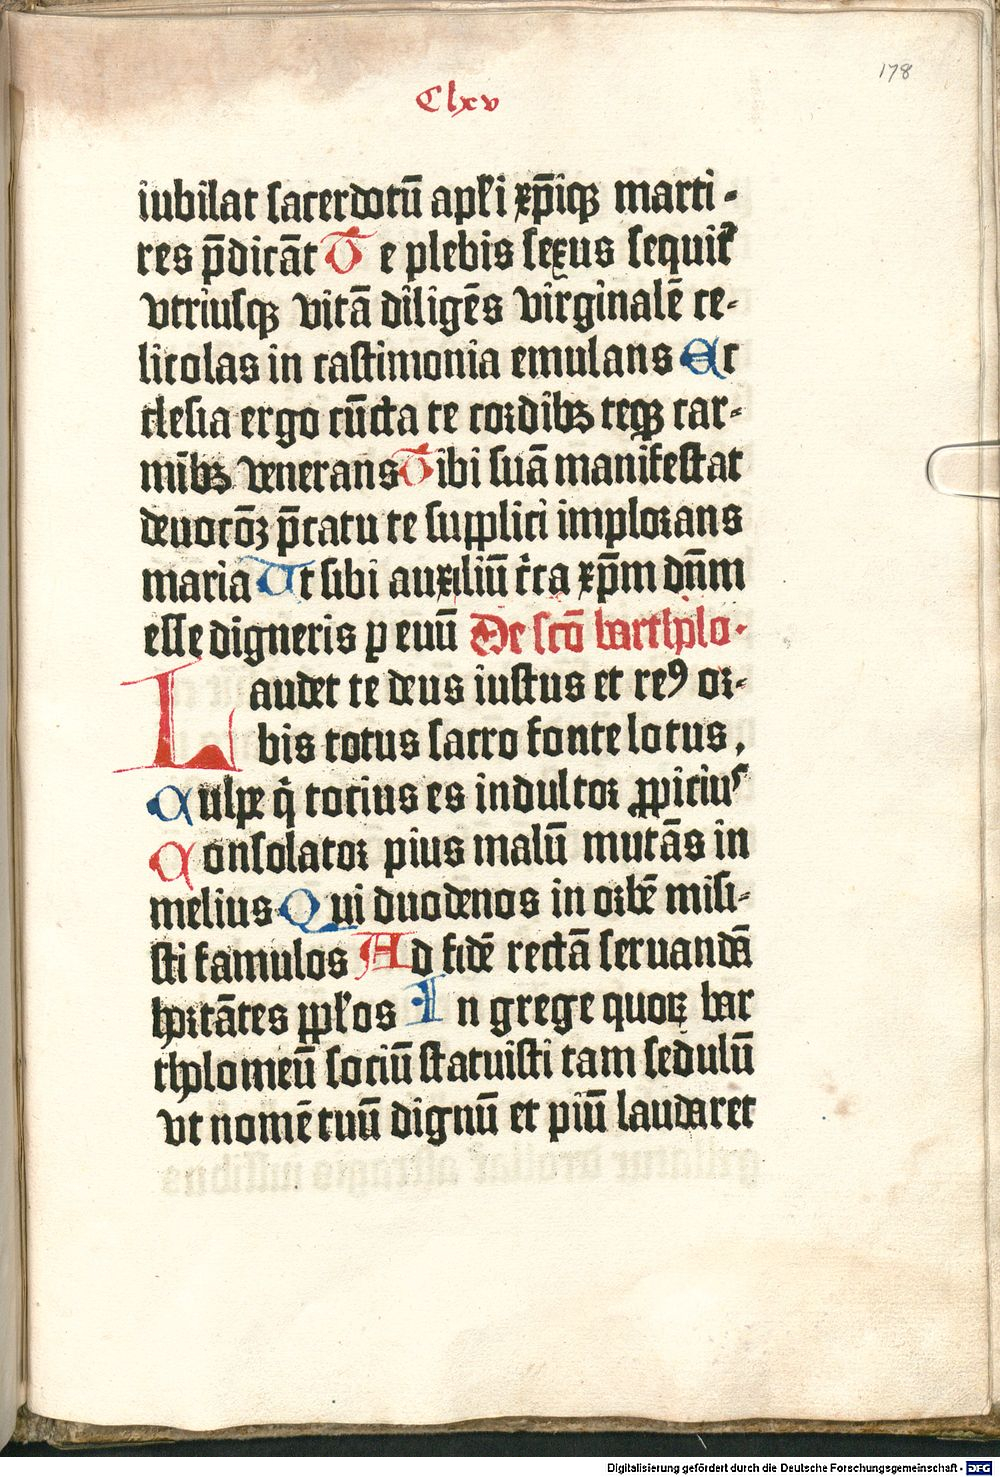 178
Clxv
iubilat sacerdotū apl̄i xp̄iq̄ marti-
res p̄dicāt Te plebis sexus sequit᷑
vtriusq̄ vitā diligēs virginalē ce-
licolas in castimonia emulans Ec
clesia ergo cūcta te cordibꝫ teqꝫ car-
mībꝫ venerans Tibi suā manifestat
deuocōꝫ p̄catu te supplici implorans
maria Ut sibi auxiliū c̄ca xp̄m dn̄m
esse digneris p euū De sctō barthlo.
Laudet te deus iustus et reꝰ or-
bis totus sacro fonte lotus,
Culpe q̄ tocius es indultor ꝓpiciuˢ
Consolator pius malū mutās in
melius Qui duodenos in orbē misi-
sti famulos Ad fidē rectā seruandā
hortātes ppl̄os In grege quoꝝ bar
tholomeū sociū statuisti tam sedulū
vt nomē tuū dignū et piū laudaret
Digitalisierung gefördert durch die Deutsche Forschungsgemeinschaft - DFG